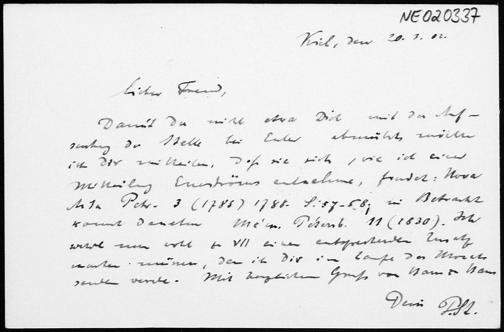 NE020337
Kiel, den 20. 3. 02.
Lieber Freund,
Damit Du nicht etwa Dich mit der Auf-
suchung der Stelle bei Euler abmühst, möchte
ich Dir mitteilen, daß sie sich, wie ich einer
Mitteilung Eneströms entnehme, findet: Nova
Acta Petr. 3 (1785) 1788. S. 57-58; in Betracht
kommt daneben Mém. Pétersb. 11 (1830). Ich
werde nun wohl zu VII einen entsprechenden Zusatz
machen müssen, den ich Dir im Laufe des Monats
senden werde. Mit herzlichem Gruß von Haus zu Haus
Dein P. St.